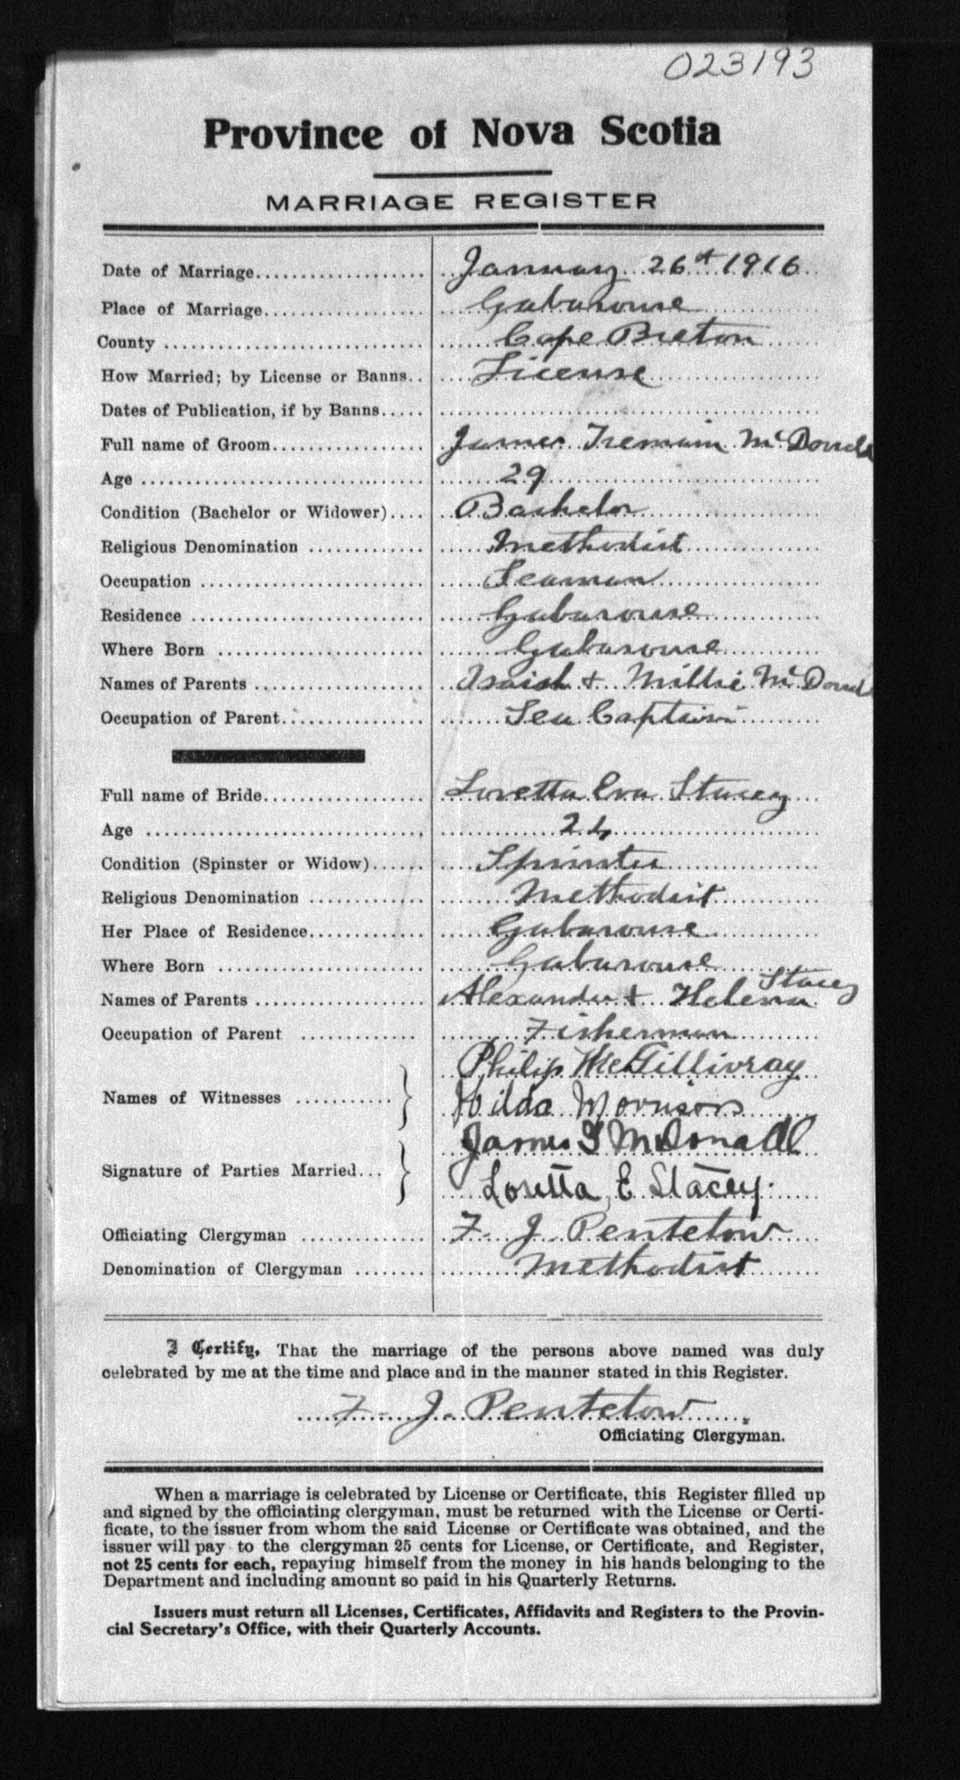 023193
Province of Nova Scotia
MARRIAGE REGISTER
Date of Marriage January 26th 1916
Place of Marriage Gabarouse
County Cape Breton
How Married; by License or Banns License
Dates of Publication, if by Banns
Full name of Groom James Tremain McDonald
Age 29
Condition (Bachelor or Widower) Bachelor
Religious Denomination Methodist
Occupation Seaman
Residence Gabarouse
Where Born Gabarouse
Names of Parents Isaiah + Millie McDonald
Occupation of Parent Sea Captain
Full name of Bride Loretta Eva Stacey
Age 24
Condition (Spinster or Widow) Spinster
Religious Denomination Methodist
Her Place of Residence Gabarouse
Where Born Gabarouse
Names of Parents Alexander + Helena Stacey
Occupation of Parent Fisherman
Names of Witnesses Philip McGillivray
Hilda Morrison
Signature of Parties Married James T McDonald
Loretta E Stacey
Officiating Clergyman F. J. Pentelow
Denomination of Clergyman Methodist
I Certify, That the marriage of the persons above named was duly
celebrated by me at the time and place and in the manner stated in this Register.
F. J. Pentelow
Officiating Clergyman.
When a marriage is celebrated by License or Certificate, this Register filled up
and signed by the officiating clergyman, must be returned with the License or Certi-
ficate, to the issuer from whom the said License or Certificate was obtained, and the
issuer will pay to the clergyman 25 cents for License, or Certificate, and Register,
not 25 cents for each, repaying himself from the money in his hands belonging to the
Department and including amount so paid in his Quarterly Returns.
Issuers must return all Licenses, Certificates, Affidavits and Registers to the Provin-
cial Secretary's Office, with their Quarterly Accounts.